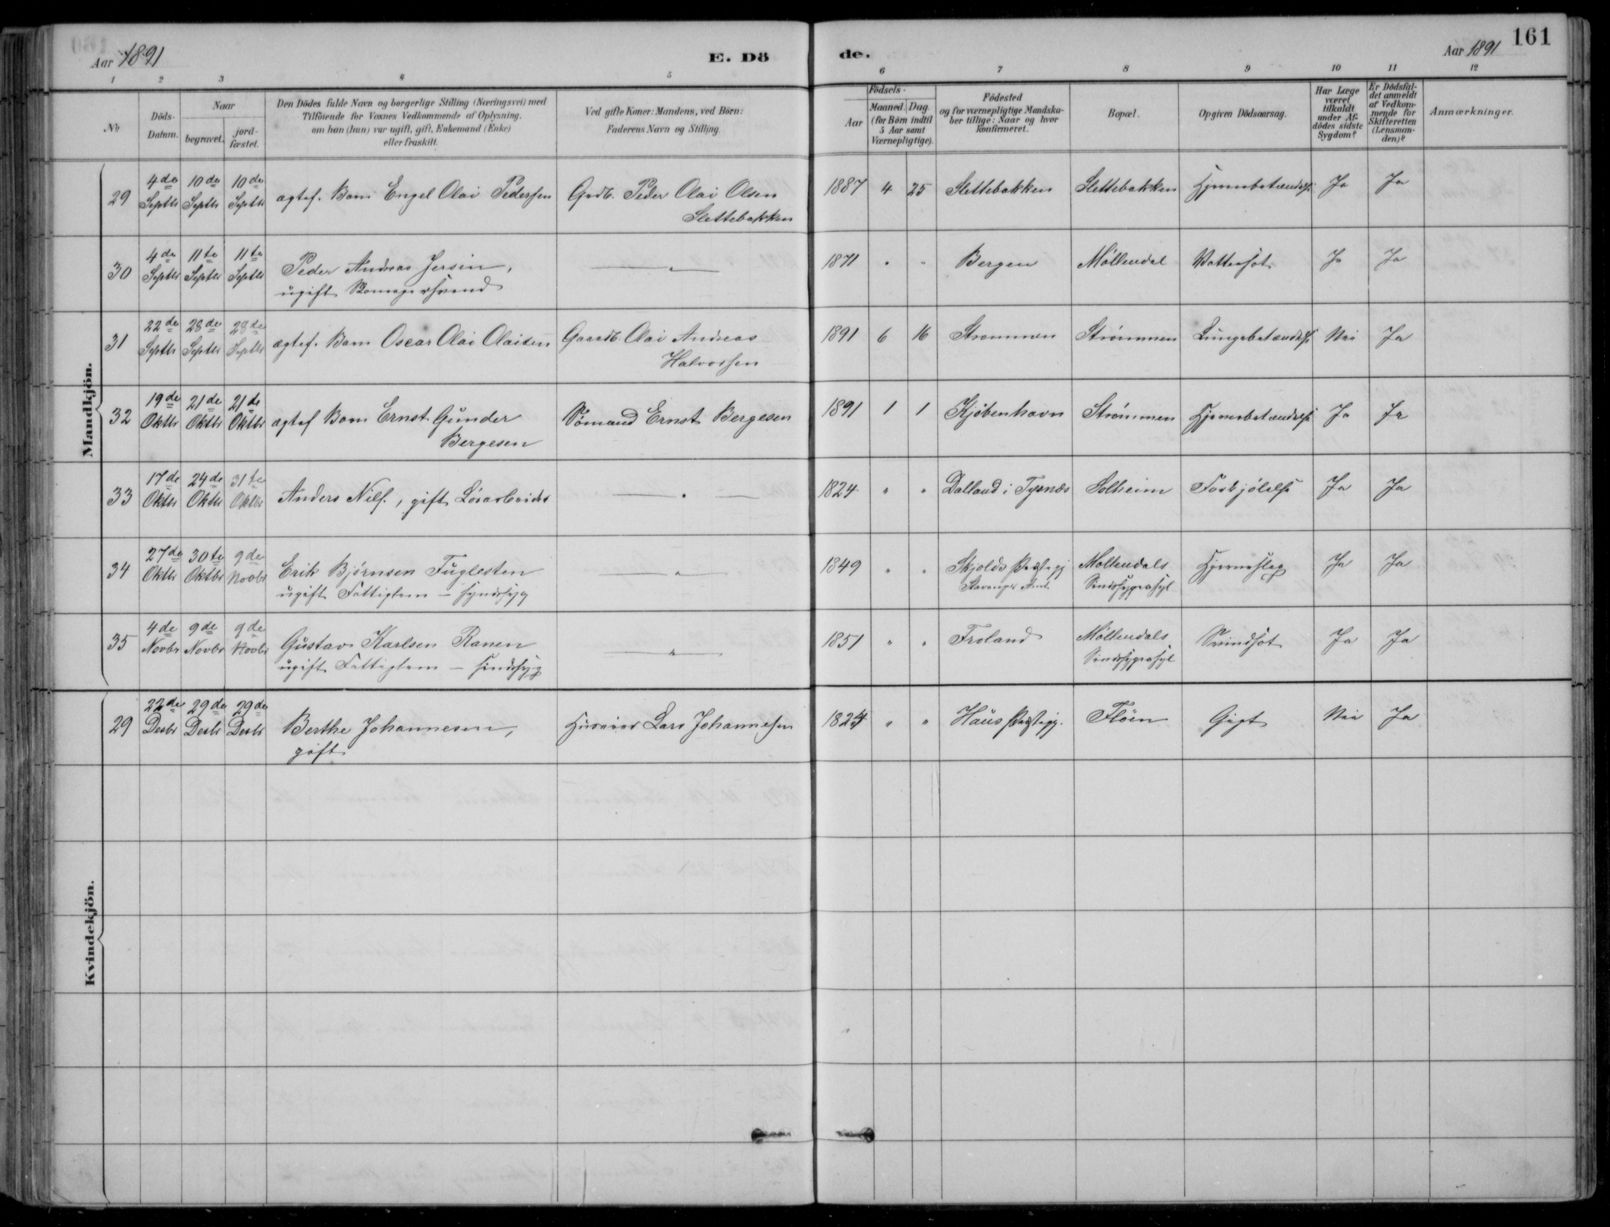 Aar 1891
E. Dö
de.
Aar 1891
161
1 2 3 4 5 6 7 8 9 10 11 12
No
Döds-Datum.
Naar
begravet.
jord-fæstet.
Den Dödes fulde Navn og borgerlige Stilling (Næringsvei) med
Tilföiende for Voxnes Vedkommende af Oplysning,
om han (hun) var ugift, gift, Enkemand (Enke)
eller fraskilt.
Ved gifte Koner: Mandens, ved Börn:
Faderens Navn og Stilling.
Födsels-
Aar
Maaned Dag
(for Börn indtil
5 Aar samt
Værnepligtige).
Födested
og for værnepligtige Mandska-
ber tillige: Naar og hvor
konfirmeret.
Bopæl.
Opgiven Dödsaarsag.
Har Læge
været
tilkaldt
under Af-
dödes sidste
Sygdom?
Er Dödsfal-
det anmeldt
af Vedkom-
mende for
Skifteretten
(Lensman-
den)?
Anmærkninger.
Mandkjön.
29 4de Septbr 10de Septbr 10de Septbr ægtef. Barn Engel Olai Pedersen Grdb. Peder Olai Olsen 1887 4 25 Slettebakken Slettebakken Hjernebetændelse Ja Ja
Slettebakken
30 4de Septbr 11te Septbr 11te Septbr Peder Andreas Jersin, — " — 1871 " " Bergen Möllendal Vattersot Ja Ja
ugift
31 22de Septbr 28de Septbr 28de Septbr ægtef. Barn Oscar Olai Olaisen Gaardb. Olai Andreas 1891 6 16 Strømmen Strømmen Lungebetændelse Nei Ja
Halvorsen
32 19de Oktbr 21de Oktbr 21de Oktbr ægtef Barn Ernst Gunder Sömand Ernst Bergesen 1891 1 1 Kjøbenhavn Strømmen Hjernebetændelse Ja Ja
Bergesen
33 17de Oktbr 24de Oktbr 31te Oktbr Anders Nils., gift Løsarbeider — " — 1824 " " Dalland i Tysnæs Solheim Forkjölelse Ja Ja
34 27de Oktbr 30te Oktbr 9de Novbr Erik Björnsen Fuglesten — " — 1849 " " Skjolds Præstegj Möllendals Hjerneslag Ja Ja
ugift Fattiglem – sindssyg Stavanger Amt Sindssygeasyl
35 4de Novbr 9de Novbr 9de Novbr Gustav Karlsen Ranen — " — 1851 " " Froland Möllendals Svindsot Ja Ja
ugift Fattiglem – sindssyg Sindssygeasyl
Kvindekjön.
29 22de Decbr 29de Decbr 29de Decbr Berthe Johannesen, Husmand Lars Johannesen 1824 " " Haus Præstegj. Flöen Gigt Nei Ja
gift